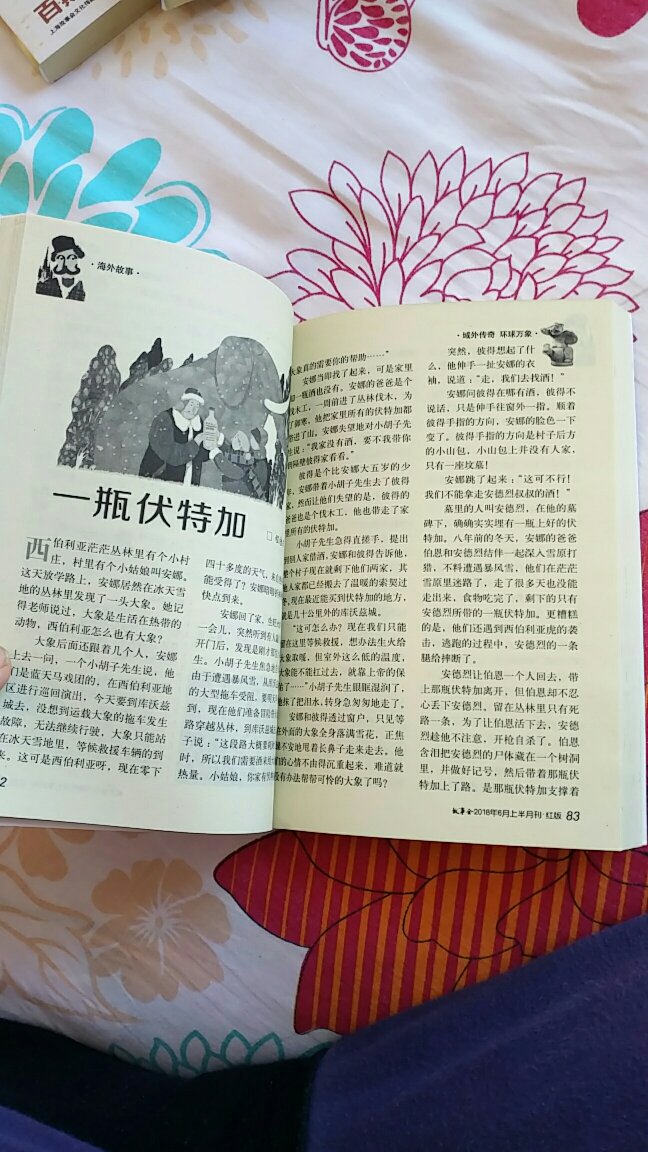 百
上海故事会文化传媒
·海外故事·
一瓶伏特加
西伯利亚茫茫丛林里有个小村
庄，村里有个小姑娘叫安娜。
这天放学路上，安娜居然在冰天雪
地的丛林里发现了一头大象。她记
得老师说过，大象是生活在热带的
动物，西伯利亚怎么也有大象？
大象后面还跟着几个人，安娜
上去一问，一个小胡子先生说，他
门是蓝天马戏团的，在西伯利亚地
区进行巡回演出，今天要到库沃兹
城去，没想到运载大象的拖车发生
故障，无法继续行驶，大象只能站
在冰天雪地里，等候救援车辆的到
来。这可是西伯利亚呀，现在零下
2
四十多度的天气，
能受得了？安娜
快点到来。
安娜回了家，
一会儿，突然听到有
开门后，发现是刚才
生。小胡子先生焦急
由于遭遇暴风雪，
的大型拖车受阻，要
到，现在他们准备冒
路穿越丛林，到库沃兹
子说：“这段路大概要
时，所以我们需要酒来
热量。小姑娘，你家有
大象真的需要你的帮助……”
安娜当即找了起来，可是家里
一瓶酒也没有。安娜的爸爸是个
伐木工，一周前进了丛林伐木，为
了御寒，他把家里所有的伏特加都
带进了山。安娜失望地对小胡子先
生说：“我家没有酒，要不我带你
到隔壁彼得家看看。”
彼得是个比安娜大五岁的少
年，安娜带着小胡子先生去了彼得
家，然而让他们失望的是，彼得的
爸爸也是个伐木工，他也带走了家
里所有的伏特加。
小胡子先生急得直搓手，提出
到别人家借酒，安娜和彼得告诉他，
整个村子现在就剩下他们两家，其
他人家都已经搬去了温暖的索契过
冬，现在最近能买到伏特加的地方，
就是几十公里外的库沃兹城。
“这可怎么办？现在我们只能
留在这里等候救援，想办法生火给
大象取暖，但室外这么低的温度，
大象能不能扛过去，就靠上帝的保
佑了……”小胡子眼眶湿润了，
他抹了把泪水，转身急匆匆地走了。
安娜和彼得透过窗户，只见等
在外面的大象全身落满雪花，正焦
躁不安地甩着长鼻子走来走去。他
们的心情不由得沉重起来，难道就
没有办法帮帮可怜的大象了吗？
·域外传奇 环球万象·
突然，彼得想起了什
么，他伸手一扯安娜的衣
袖，说道：“走，我们去找酒！”
安娜问彼得在哪有酒，彼得不
说话，只是伸手往窗外一指。顺着
彼得手指的方向，安娜的脸色一下
变了。彼得手指的方向是村子后方
的小山包，小山包上并没有人家，
只有一座坟墓！
安娜跳了起来：“这可不行！
我们不能拿走安德烈叔叔的酒！”
墓里的人叫安德烈，在他的墓
碑下，确确实实埋有一瓶上好的伏
特加。八年前的冬天，安娜的爸爸
伯恩和安德烈结伴一起深入雪原打
猎，不料遭遇暴风雪，他们在茫茫
雪原里迷路了，走了很多天也没能
走出来，食物吃完了，剩下的只有
安德烈所带的一瓶伏特加。更糟糕
的是，他们还遇到西伯利亚虎的袭
击，逃跑的过程中，安德烈的一条
腿给摔断了。
安德烈让伯恩一个人回去，带
上那瓶伏特加离开，但伯恩却不忍
心丢下安德烈，留在丛林里只有死
路一条，为了让伯恩活下去，安德
烈趁他不注意，开枪自杀了。伯恩
含泪把安德烈的尸体藏在一个树洞
里，并做好记号，然后带着那瓶伏
特加上了路。是那瓶伏特加支撑着
故事会2018年6月上半月刊·红版 83